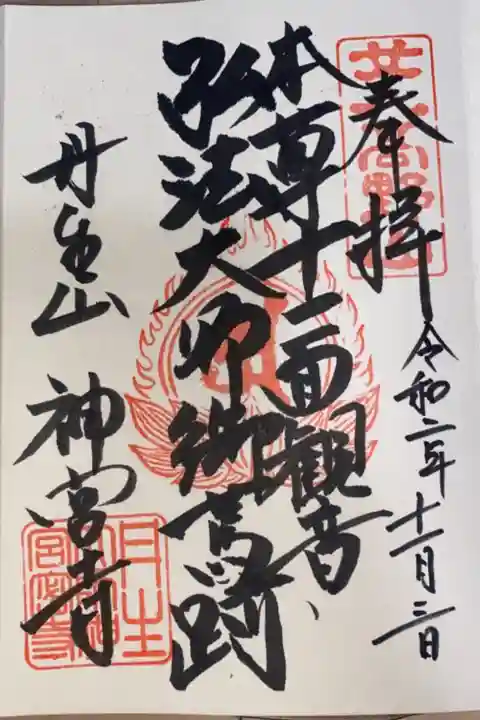 奉拝
令和二年十一月三日
本尊十一面観音
弘法大師御旧跡
丹生山
神宮寺